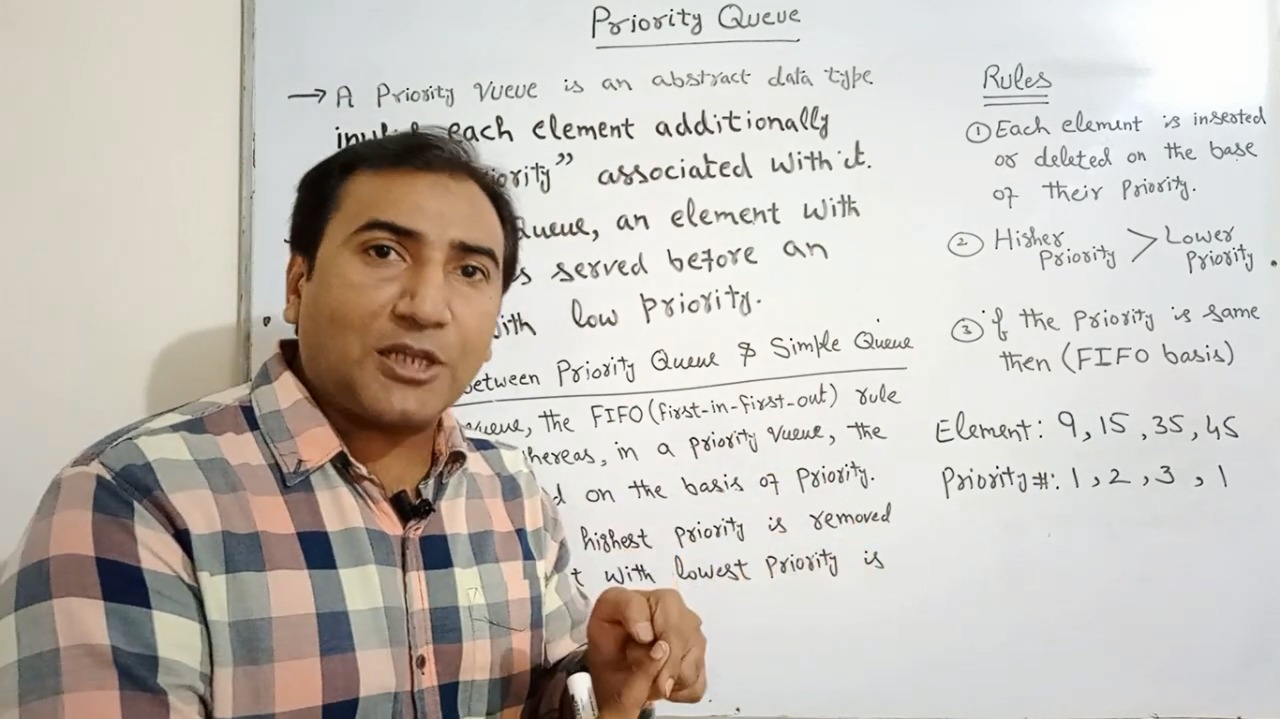 Priority Queue
→ A Priority Queue is an abstract data type
each element additionally
associated with it.
Queue, an element with
served before an
low priority.
between Priority Queue & Simple Queue
Queue, the FIFO (first-in-first-out) rule
whereas, in a priority queue, the
on the basis of priority.
highest priority is removed
with lowest priority is
Rules
① Each element is inserted
or deleted on the base
of their Priority.
② Higher Priority > Lower Priority
③ if the priority is same
then (FIFO basis)
Element: 9, 15, 35, 45
Priority#: 1, 2, 3, 1